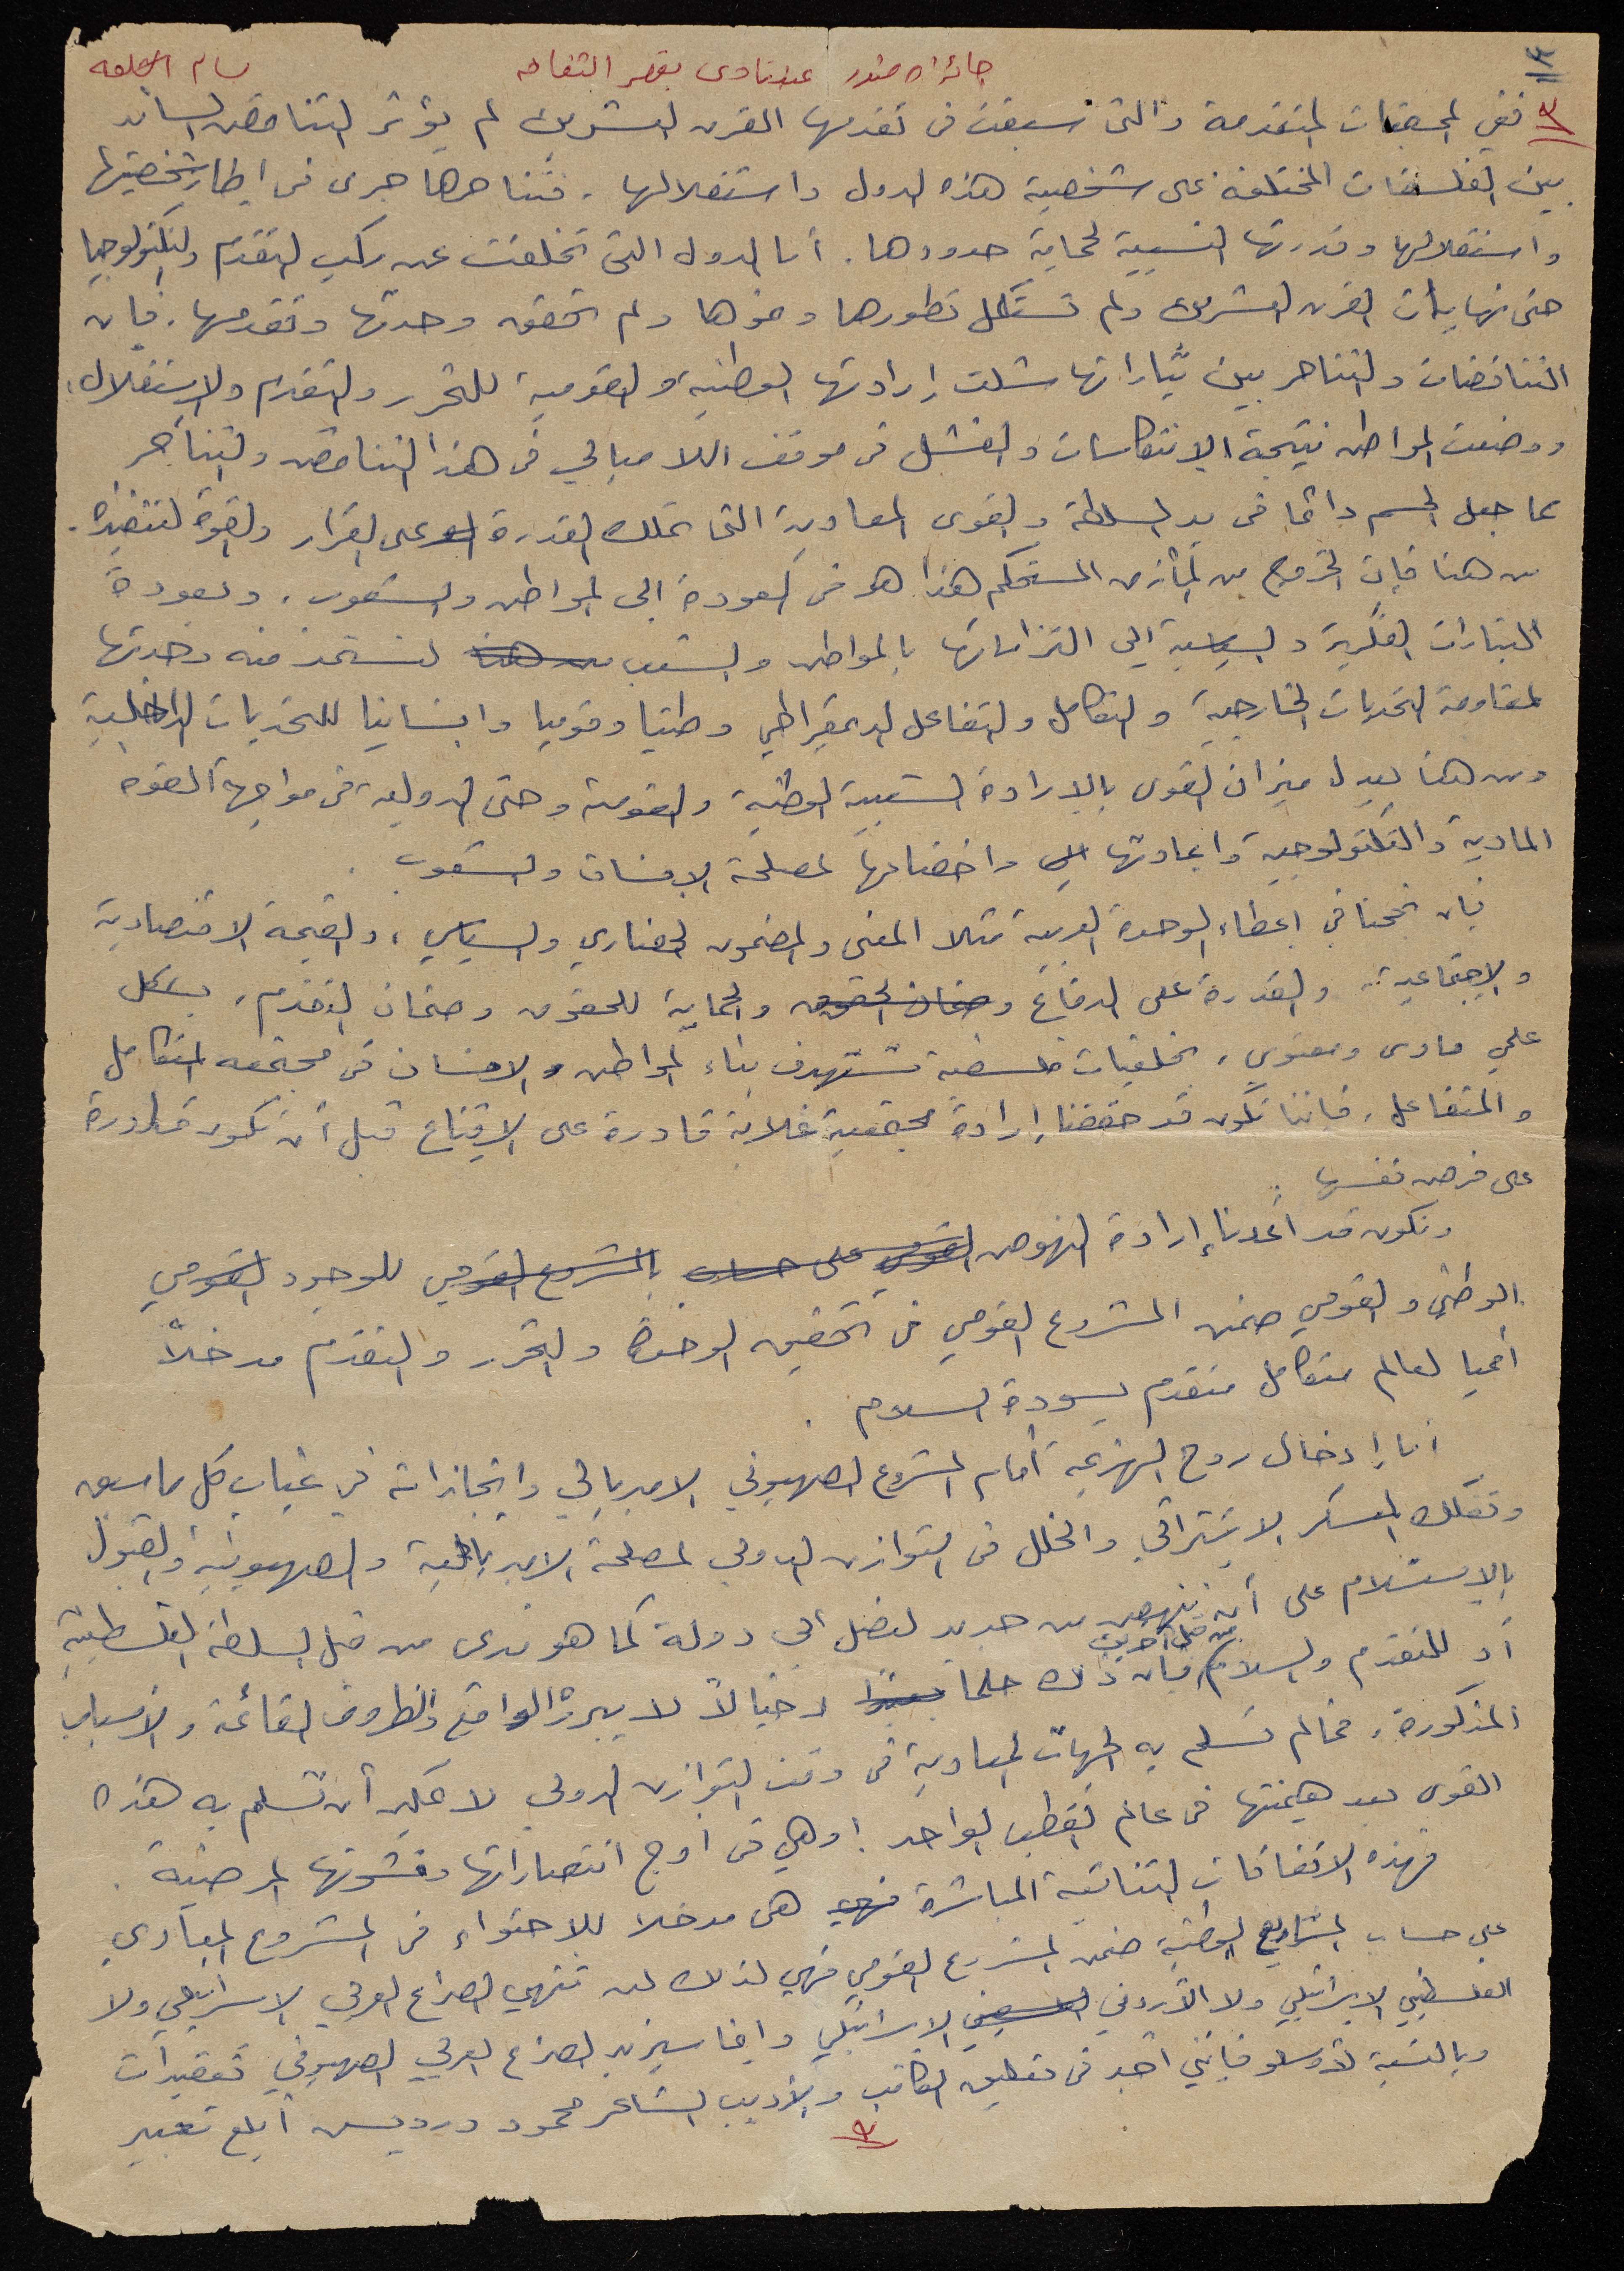 ٣
بسام الشلعه
٣ ففي المجتمعات المتقدمة والتي سبقت في تقدمها القرن العشرين لم يؤثر التناقض السائد
بين الفلسفات المختلفة على شخصية هذه الدول واستقلالها . فتناحرها جرى في إطار شخصيتها
واستقلالها وقدرتها النسبية لحماية حدودها . أما الدول التي تخلفت عن ركب التقدم والتكنولوجيا
حتى نهايات القرن العشرين ولم تستكمل تطورها ونموها ولم تحقق وحدتها وتقدمها ، فإن
التناقضات والتناحر بين تياراتها شلت إرادتها الوطنية والقومية للتحرر والتقدم والإستقلال ،
ووضعت المواطن نتيجة الإنتكاسات والفشل في موقف اللامبالي في هذا التناقض والتناحر
مما جعل الحسم دائما في يد السلطة والقوى المعادية التي تملك القدرة على القرار والقوة لتنفيذه .
من هنا فإن الخروج من المأزق المستحكم هذا هو في العودة الى المواطن والشعوب . وبعودة
التيارات الفكرية والسياسية إلى التزاماتها بالمواطن والشعب من هنا لتستمد منه وحدتها
لمقاومة التحديات الخارجية والتكامل والتفاعل الديمقراطي وطنيا وقوميا وانسانيا للتحديات الداخلية
ومن هنا يعدل ميزان القوى بالارادة الشعبية الوطنية والقومية وحتى الدولية في مواجهة القوة
المادية والتكنولوجية واعادتها واخضاعها لمصلحة الإنسان والشعوب .
فإن نجحنا في اعطاء الوحدة العربية مثلا المعنى والمضمون الحضاري والسياسي ، والقيمة الاقتصادية
والإجتماعية . والقدرة على الدفاع وضمان الحقوق والحماية للحقوق وضمان التقدم ، بشكل
علمي مادي ومعنوي ، بخلفيات فلسفية تستهدف بناء المواطن والإنسان في مجتمعه المتكامل
والمتفاعل ، فاننا نكون قد حققنا إرادة مجتمعية غلابة قادرة على الإقناع قبل أن تكون قادرة
على فرض نفسها .
ونكون قد أعدنا إرادة النهوض القومي على حساب بالمشروع القومي للوجود القومي
الوطني والقومي ضمن المشروع القومي في تحقيق الوحدة والتحرر والتقدم مدخلاً
أمميا لعالم متكامل متقدم يسوده السلام .
أما إدخال روح الهزيمة أمام المشروع الصهيوني الامبريالي وانجازاته في غياب كل ما سبق
وتفكك المعسكر الاشتراكي والخلل في التوازن الدولي لمصلحة الامبريالية والصهيونية والقبول
بالإستسلام على أن ننهض من جديد لنصل الى دولة كما هو مدعى من قبل السلطة الفلسطينية
من قبل آخرين
أو للتقدم والسلام فإن ذلك حلما وخيالاً لا يبرره الواقع والظروف القائمة والأسباب
المذكورة ، فما لم تسلم به الجهات المعادية في وقت التوازن الدولي لا يمكن أن تسلم به هذه
القوى بعد هيمنتها في عالم القطب الواحد ! وهي في أوج انتصاراتها ونشوتها المرضية .
فهذه الاتفاقات الثنائية المباشرة فهي هي مدخلا للاحتواء في المشروع المعادي
على حساب المشاريع الوطنية ضمن المشروع القومي فهي لذلك لن تنهي الصراع العربي الإسرائيلي ولا
الفلسطيني الإسرائيلي ولا الأردني الإسرائيلي وإنما سيزيد الصراع العربي الصهيوني تعقيدات
وبالنسبة لأوسلو فإنني أجد في تعليق الكاتب والأديب الشاعر محمود درويش أبلغ تعبير
٣